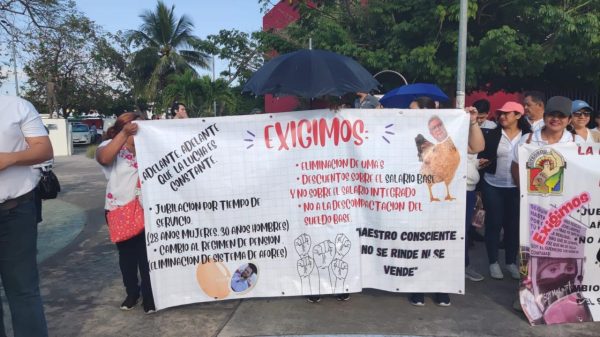 ADELANTE ADELANTE
QUE LA LUCHA ES
CONSTANTE
• JUBILACION POR TIEMPO DE
SERVICIO.
(28 AÑOS MUJERES, 30 AÑOS HOMBRES)
• CAMBIO AL REGIMEN DE PENSION
(ELIMINACION DE SISTEMA DE AFORES)
EXIGIMOS:
• ELIMINACION DE UMAS
• DESCUENTOS SOBRE EL SALARIO BASE
Y NO SOBRE EL SALARIO INTEGRADO
• NO A LA DESCOMPACTACION DEL
SUELDO BASE
"MAESTRO CONSCIENTE
NO SE RINDE NI SE
VENDE"
LA
EXIGIMOS
JUB
AÑ
NO A